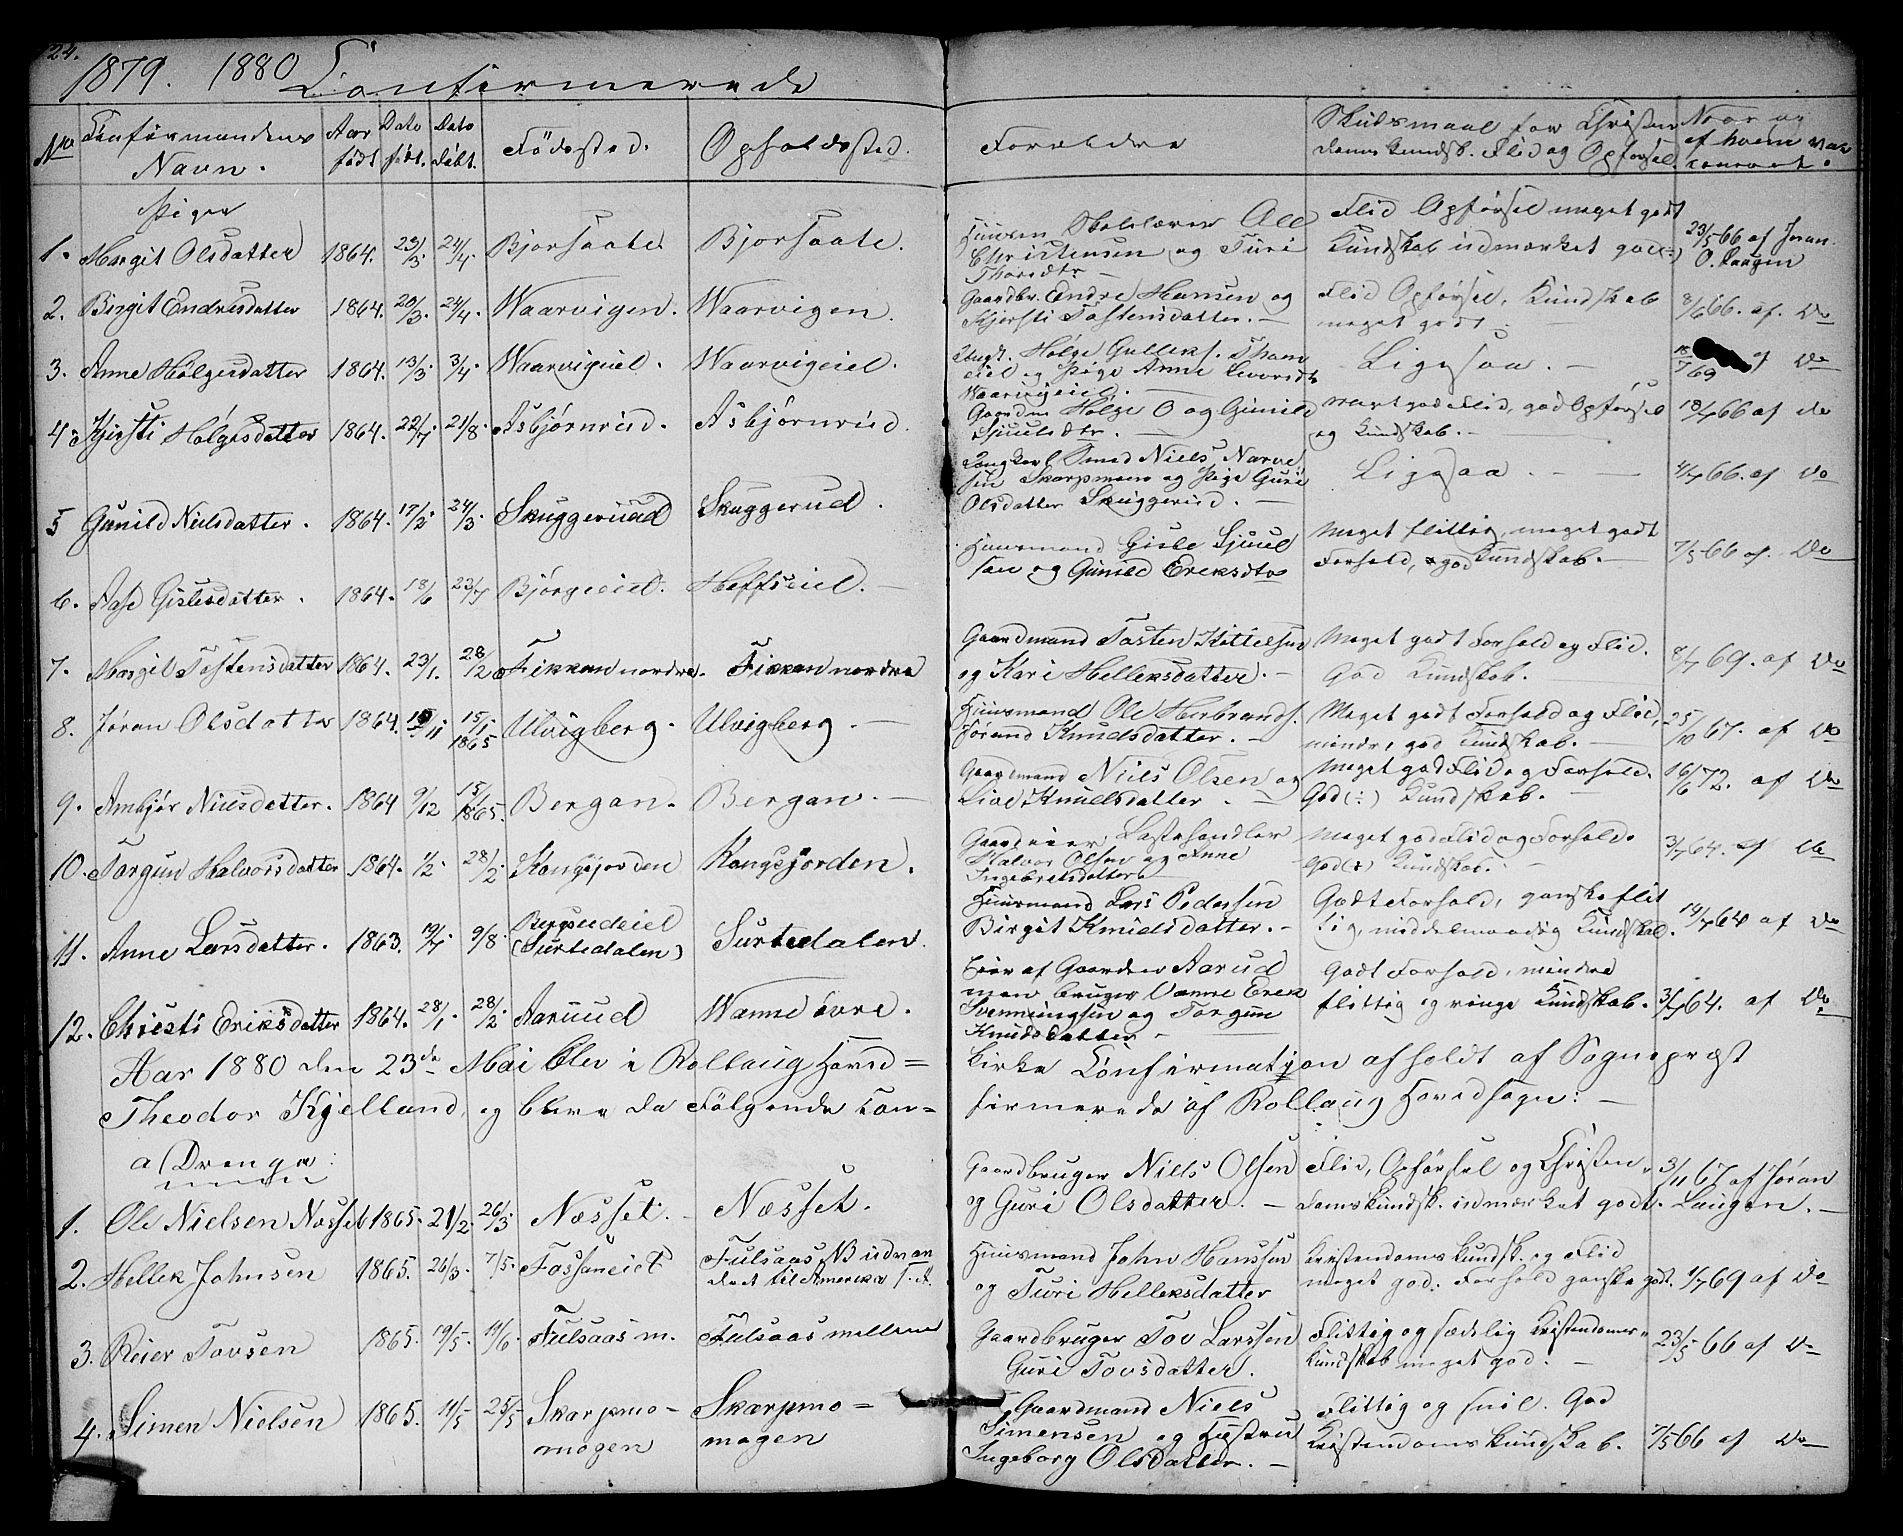 24.
1879. 1880 Confirmerede
No Confirmandens Navn. Aar født Dato født. Dato døbt. Fødested. Opholdssted. Forældre Skudsmaal for Christendomskundsk. Flid og Opførsel. Naar og af hvem vac
Piger
1. Margit Olsdatter 1864. 23/3. 24/4. Bjorsaate Bjorsaate. Skolelærer Ole Christensen og Turi Thorsdtr Flid Opførsel meget godt Kundskab udmærket god(÷) 23/5 66 af Jøran O. Laagen
2. Birgit Endresdatter 1864. 20/3. 24/4. Waarvigen. Waarvigen. Gaardbr. Endre Hansen og Kjersti Tostensdatter. Flid Opførsel, Kundskab meget godt. 8/6 66. af. Do
3. Anne Holgesdatter 1864. 13/3. 3/4. Waarvigeiel. Waarvigeiel. Ungk. Holge Gulleks. og Pige Anne Waarvigeiel. Ligesaa. 69 af Do
4. Kjersti Holgesdatter 1864. 22/7. 21/8. Asbjørnrud. Asbjørnrud. Holge O og Gunild Sjuulsdtr. Meget god Flid, god Opførsel og Kundskab. 18/7 66 af do
5 Gunild Nielsdatter. 1864. 17/2. 24/3. Skuggeruud Skuggerud. Ungkarl Smed Niels Narvesen Skarpmoen og Pige Guri Olsdatter Skuggerud. Ligesaa 4/7 66. af Do
6. Aase Gislesdatter. 1864. 18/6 23/7 Bjørgeeiel. Heffseiel. Huusmand Gisle Sjuulsen og Gunild Eriksdtr Meget flittig, meget godt Forhold, god Kundskab. 7/5 66 af. Do
7. Margit Tostensdatter 1864. 23/1. 28/2 Fikkan nordre. Fikkan nordre Gaardmand Tosten Kittelsen og Kari Helleksdatter. Meget godt Forhold og Flid. God Kundskab. 8/7 69. af Do
8. Jøran Olsdatter 1864. /11 15/1 1865 Ulvigberg. Ulvigberg. Huusmand Ole Herbrands. Jørand Knudsdatter. Meget godt Forhold og Flid, mindre god Kundskab. 25/10 67. af Do
9. Ambjør Nielsdatter. 1864 9/12 15/1 1865. Bergan. Bergan. Gaardmand Niels Olsen og Live Knudsdatter. Meget god Flid og Forhold. God(÷) Kundskab. 16/6 72. af Do
10. Torgun Halvorsdatter 1864. 1/2. 28/2 Kongsjorden Kongsjorden. Halvor Olsen og Anne Ingebretsdatter Meget god Flid og Forhold. God(÷) Kundskab. 3/7 64. af do
11. Anne Larsdatter. 1863. 19/7 9/8. Bergsudeiel (Surtedalen) Surtedalen. Huusmand Lars Pedersen Birgit Knudsdatter. Godt Forhold, ganske flittig, middelmaadig Kundskab. 14/7 64 af Do
12. Christi Eriksdatter 1864. 28/1. 28/2. Aaruud Wamne øvre. Eier af Gaarden Aarud men bruger Vamne Erik Svenningsen og Torgun Knudsdatter Godt Forhold, mindre flittig og ringe Kundskab. 3/7 64. af Do
Aar 1880 den 23de Mai blev i Rollaug Hoved= Kirke Confirmation afholdt af Sogneprest
Theodor Kjelland, og bleve da Følgende con= firmerede af Rollaug Hovedsogn:
a) Drenge:
1. Ole Nielsen Næsset 1865. 21/2. 26/3. Næsset. Næsset. Gaardbruger Niels Olsen og Guri Olsdatter. Flid, Opførsel og Christendomskundsk. udmærket godt. 3/11 67 af Jøran Laugen.
2. Hellek Johnsen 1865. 26/3. 7/5. Fossaneiet Fulsaas NB udvandret til Amerika Huusmand John Hanssen og Turi Helleksdatter Kristendomskundsk. og Flid meget god. Forhold ganske godt. 1/7 69 af Do
3. Reier Tovsen 1865. 19/5. 11/6. Fulsaas m. Fulsaas mellem Gaardbruger Tov Larssen Guri Tovsdatter. Flittig og sædelig Kristendoms= kundskab meget god. 23/5 66 af Do
4. Simen Nielsen 1865. 11/5 25/5 Skarpmo= mogen Skarpmo= mogen Gaardmand Niels Simensen og Hustru Ingeborg Olsdatter. Flittig og snil. God Kristendomskundskab. 7/5 66 af Do